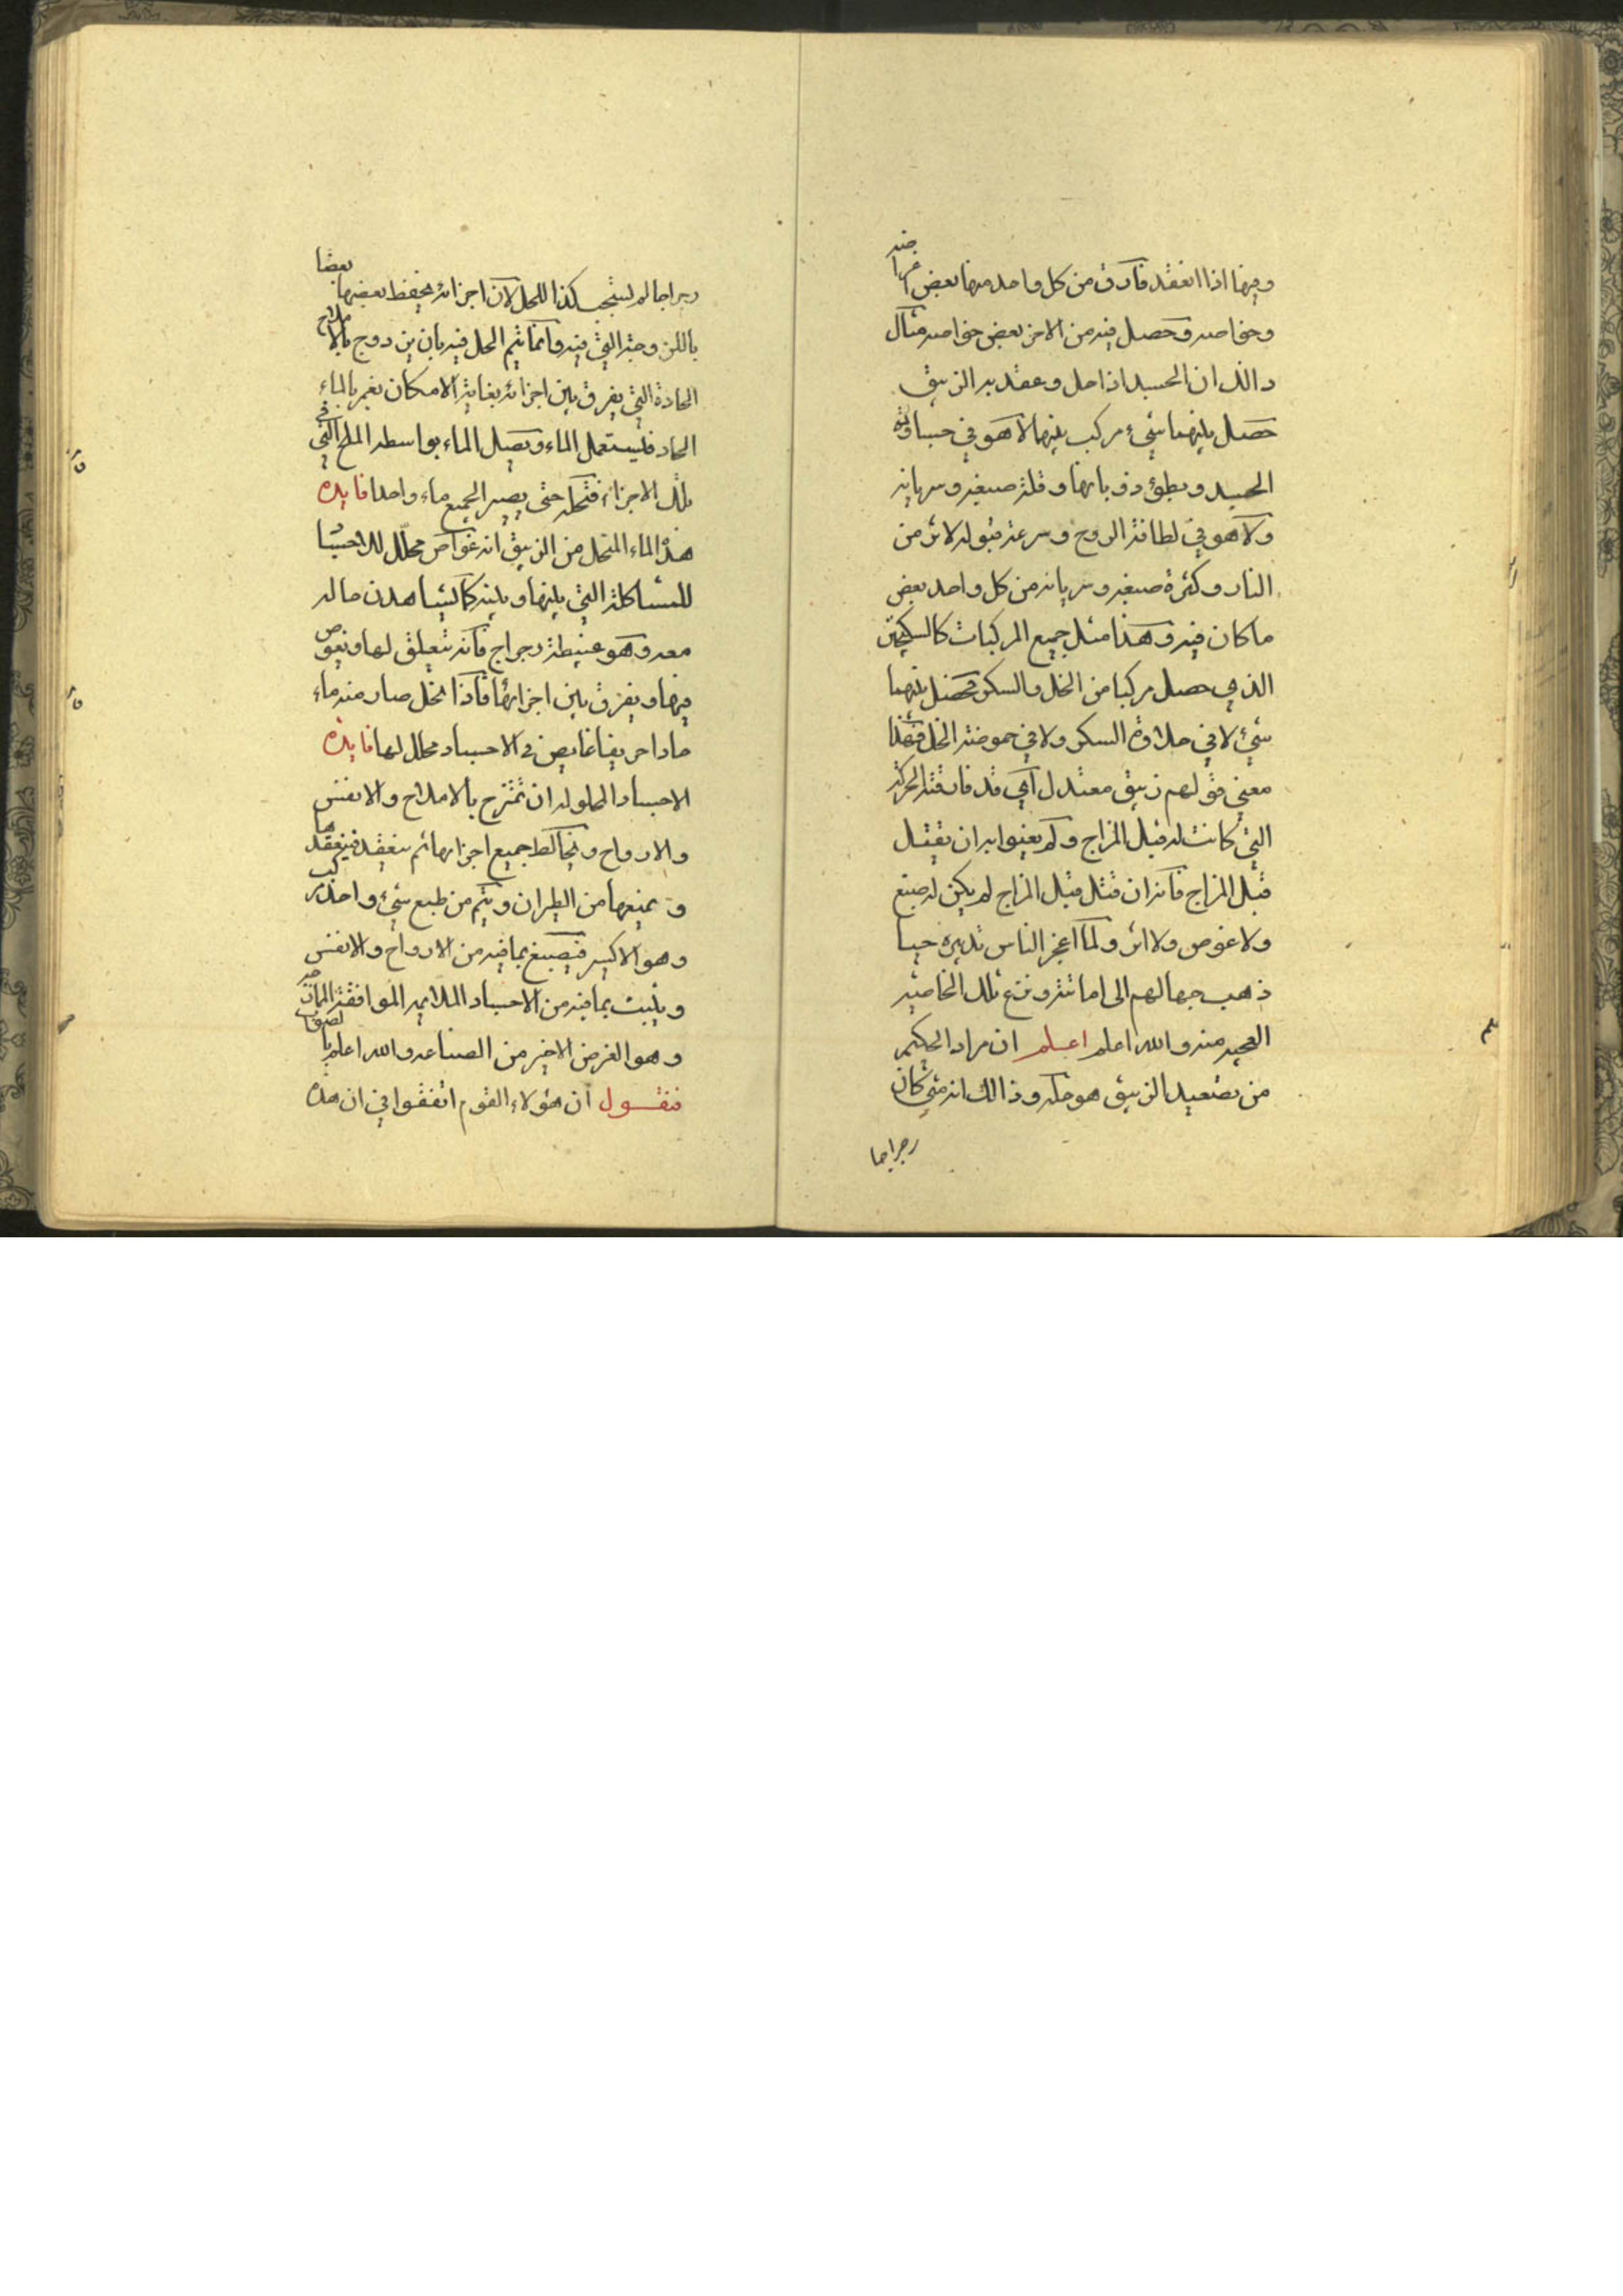 وفيها اذا انعقد فارق من كل واحد منها بعض اغراضه
وخواصه وحصل فيه من الاخر بعض خواصه مثال
ذالك ان الجسد اذا حل وعقد به الزيبق
حصل بينهما شيء مركب بينهما لا هو في جساوة
الجسد وبطوء ذوبانها وقلة صبغه وسريانه
ولا هو في لطافة الروح وسرعة قبوله لاثر من
النار وكثرة صبغه وسريانه من كل واحد بعض
ما كان فيه وهذا مثل جميع المركبات كالسكنجبين
الذي حصل مركبا من الخل والسكر فحصل بينهما
شيء لا في حلاوة السكر ولا في حموضة الخل فهذا
معني قولهم زيبق معتدل اي قد فارقته الحركة
التي كانت له قبل المزاج ولم يعنوا به ان يقتل
قبل المزاج فانه ان قتل قبل المزاج لم يكن له صبغ
ولا غوص ولا اثر ولما اعجز الناس تدبيره حيا
ذهب جهالهم الى اماتته ونزع تلك الخاصية
العجيبه منه والله اعلم اعلم ان مراد الحكيم
من تصعيد الزيبق هو حله وذالك انه متي كان
رجراجا
رجراجا لم يستجب كذا للحل لان اجزائه يحفظ بعضها بعضا
باللزوجة التي فيه وانما يتم الحل فيه بان يزدوج بالاملاح
الحادة التي يفرق بين اجزائه بغاية الامكان يغمر بالماء
الحاد فليستعمل الماء ويصل الماء بواسطه الملح التي في
تلك الاجزاء فتحله حتى يصير الجميع ماء واحدا فايده
هذه الماء المنحل من الزيبق انه غواص محلل للاجساد
للمشاكلة التي بينها وبينه كما يشاهد من حاله
معه وهو عبيطة رجراج فانه يتعلق لها ويغوص
فيها ويفرق بين اجزائها فاذا انحل صار منه ماء
حادا حريفا غايص في الاجساد محلل لها فايده
الاجساد المحلوله ان تمتزج بالاملاح والانفس
والارواح ويخالط جميع اجزائها ثم ينعقد فيعقدها
ويمنعها من الطيران ويتم من طبع شيء واحد مركب
وهو الاكسير فيصبغ بما فيه من الارواح والانفس
ويثبت بما فيه من الاجساد الملايمه الموافقة
وهو الغرض الاخير من الصناعه والله اعلم بالصواب
فنقول ان هؤلاء القوم اتفقوا في ان هذه